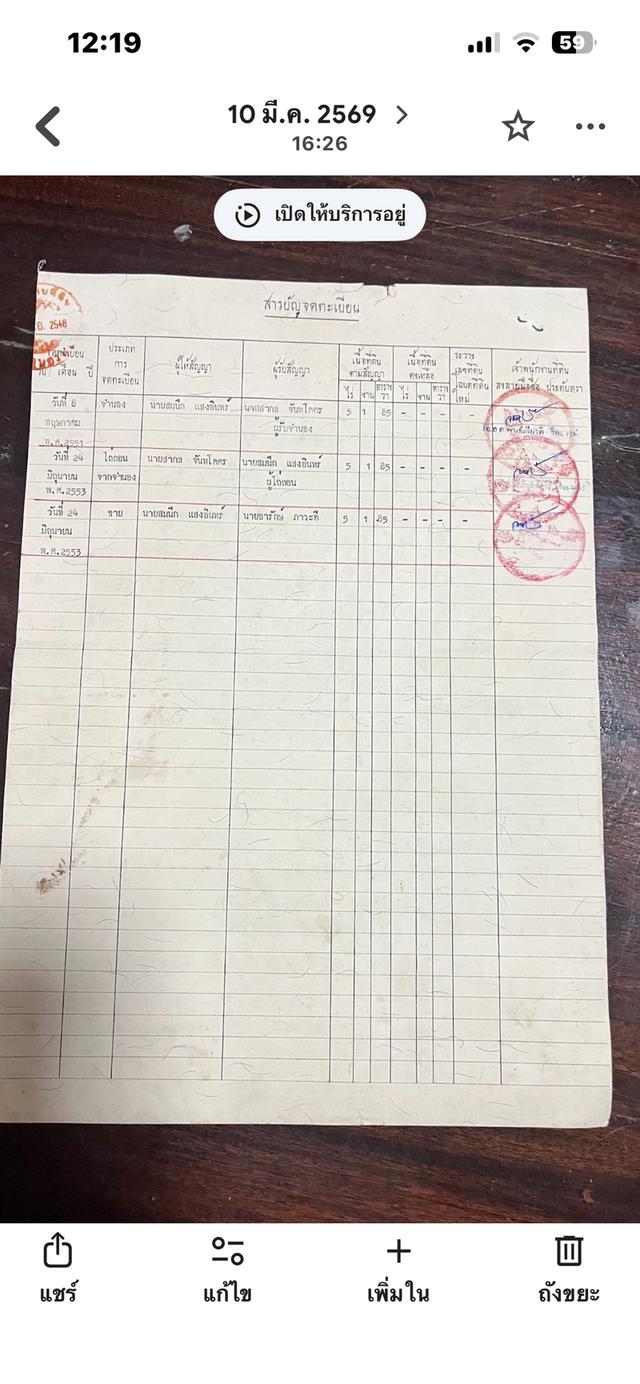 12:19
59
10 มี.ค. 2569
16:26
เปิดให้บริการอยู่
สารบัญจดทะเบียน
2548
จดทะเบียน
วัน เดือน ปี
ประเภท
การ
จดทะเบียน
ผู้ให้สัญญา
ผู้รับสัญญา
เนื้อที่ดิน
ตามสัญญา
ไร่ งาน ตาราง
วา
เนื้อที่ดิน
คงเหลือ
ไร่ งาน ตาราง
วา
ระวาง
เลขที่ดิน
โฉนดที่ดิน
ใหม่
เจ้าพนักงานที่ดิน
ลงลายมือชื่อ ประทับตรา
วันที่ 8 จำนอง นายสมนึก แสงอินทร์ นายสากล จันทโคตร 5 1 85 - - - -
พฤษภาคม ผู้รับจำนอง
พ.ศ.2551
วันที่ 24 ไถ่ถอน นายสากล จันทโคตร นายสมนึก แสงอินทร์ 5 1 85 - - - -
มิถุนายน จากจำนอง ผู้ไถ่ถอน
พ.ศ.2553
วันที่ 24 ขาย นายสมนึก แสงอินทร์ นายอารักษ์ ภาวะดี 5 1 85 - - - -
มิถุนายน
พ.ศ.2553
แชร์
แก้ไข
เพิ่มใน
ถังขยะ